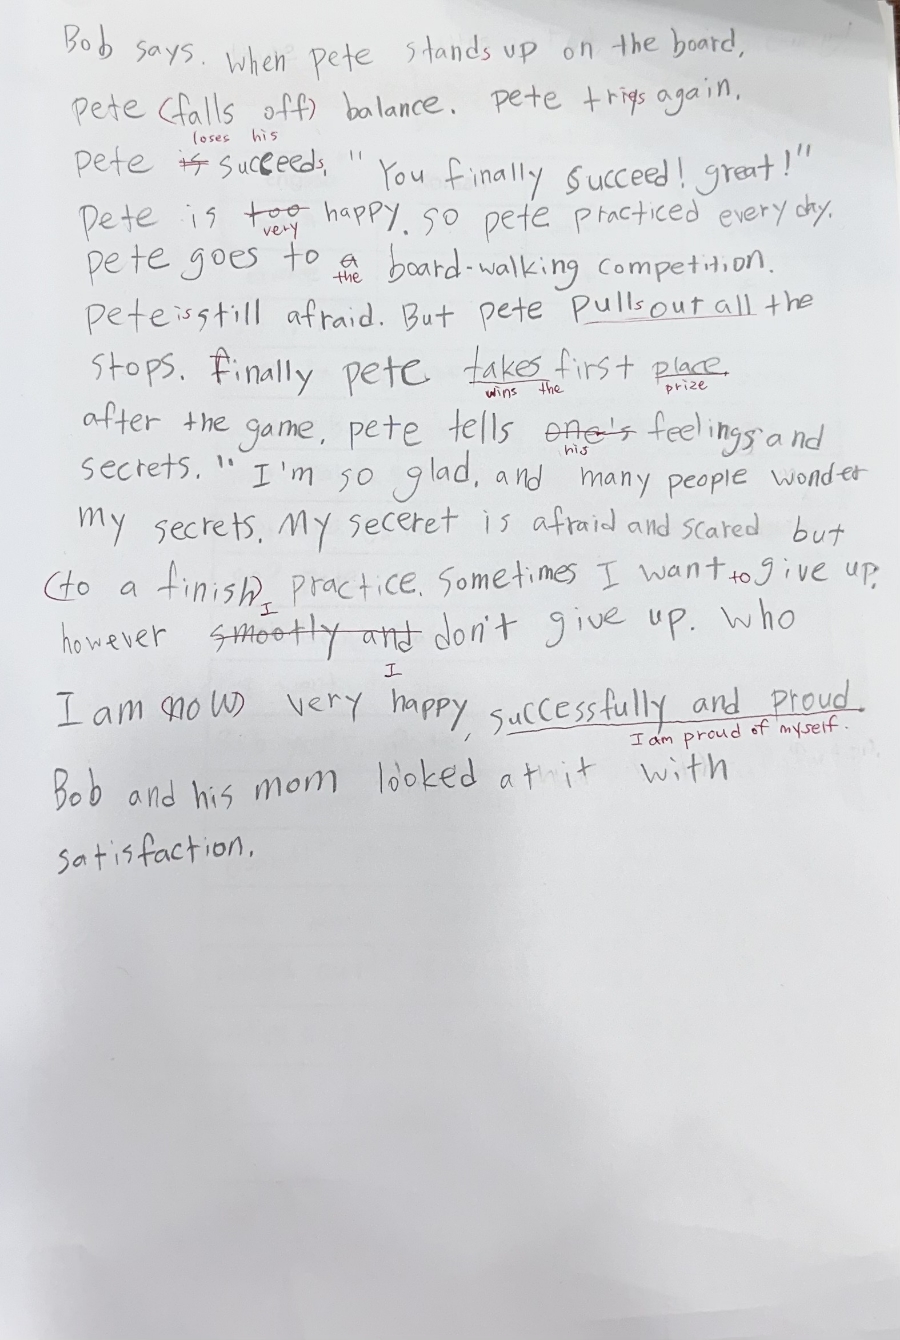 Bob says. When Pete stands up on the board,
Pete (falls off) balance. Pete tries again.
loses his
Pete is succeeds, " You finally succeed! great!"
Pete is too happy. so pete practiced every day.
very
Pete goes to a board-walking competition.
the
Pete is still afraid. But pete pulls out all the
stops. finally pete takes first place.
wins the prize
after the game, pete tells one's feelings and
his
secrets. " I'm so glad, and many people wonder
my secrets. My seceret is afraid and scared but
(to a finish) practice. Sometimes I want to give up.
I
however smootly and don't give up. Who
I
I am (now) very happy, successfully and proud.
I am proud of myself.
Bob and his mom looked at it with
satisfaction.